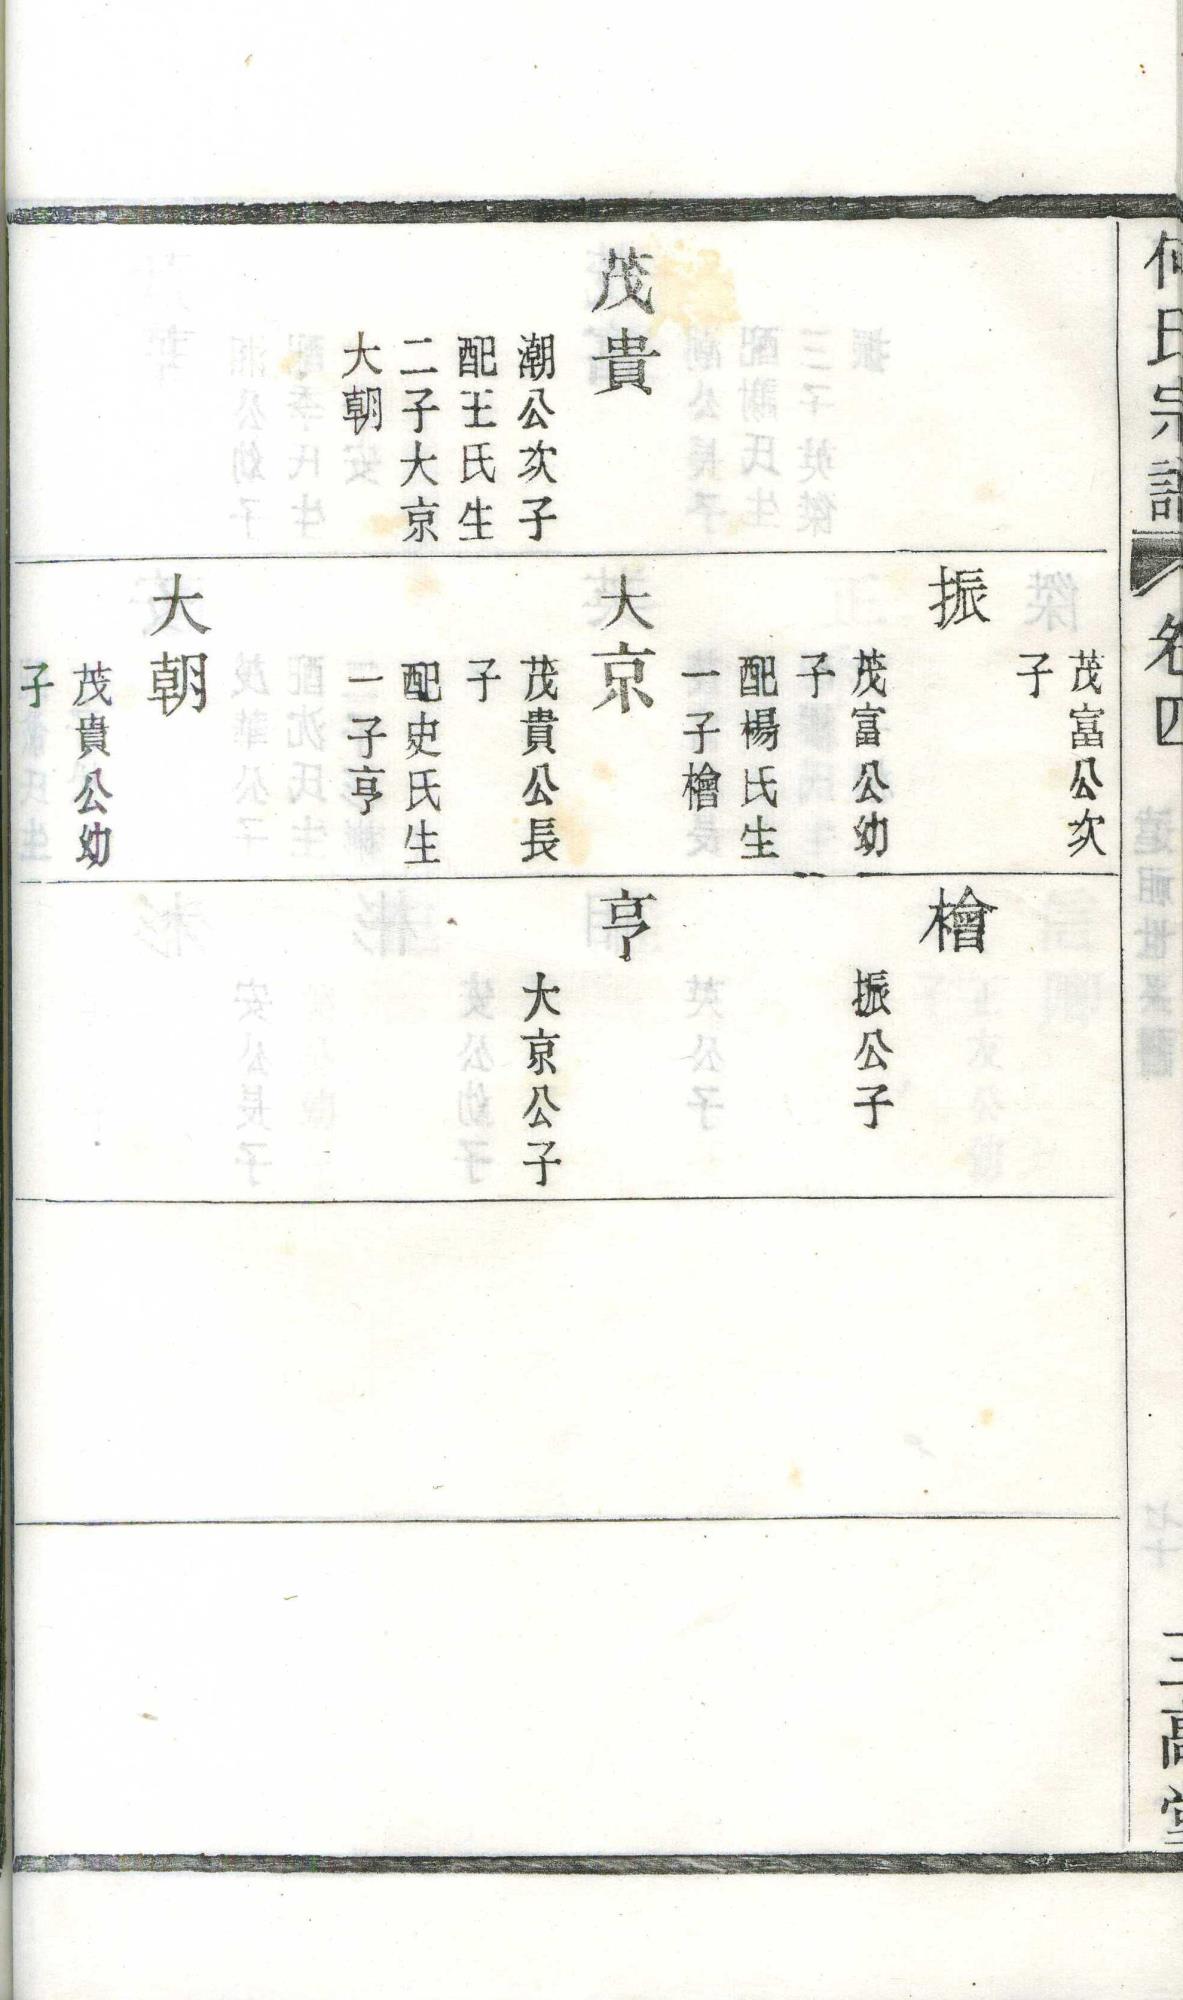 何氏宗譜
卷四
三高堂
茂貴
潮公次子
配王氏生
二子大京
大朝
茂富公次
子
振
茂富公幼
子
配楊氏生
一子檜
大京
茂貴公長
子
配史氏生
一子亨
大朝
茂貴公幼
子
檜
振公子
亨
大京公子